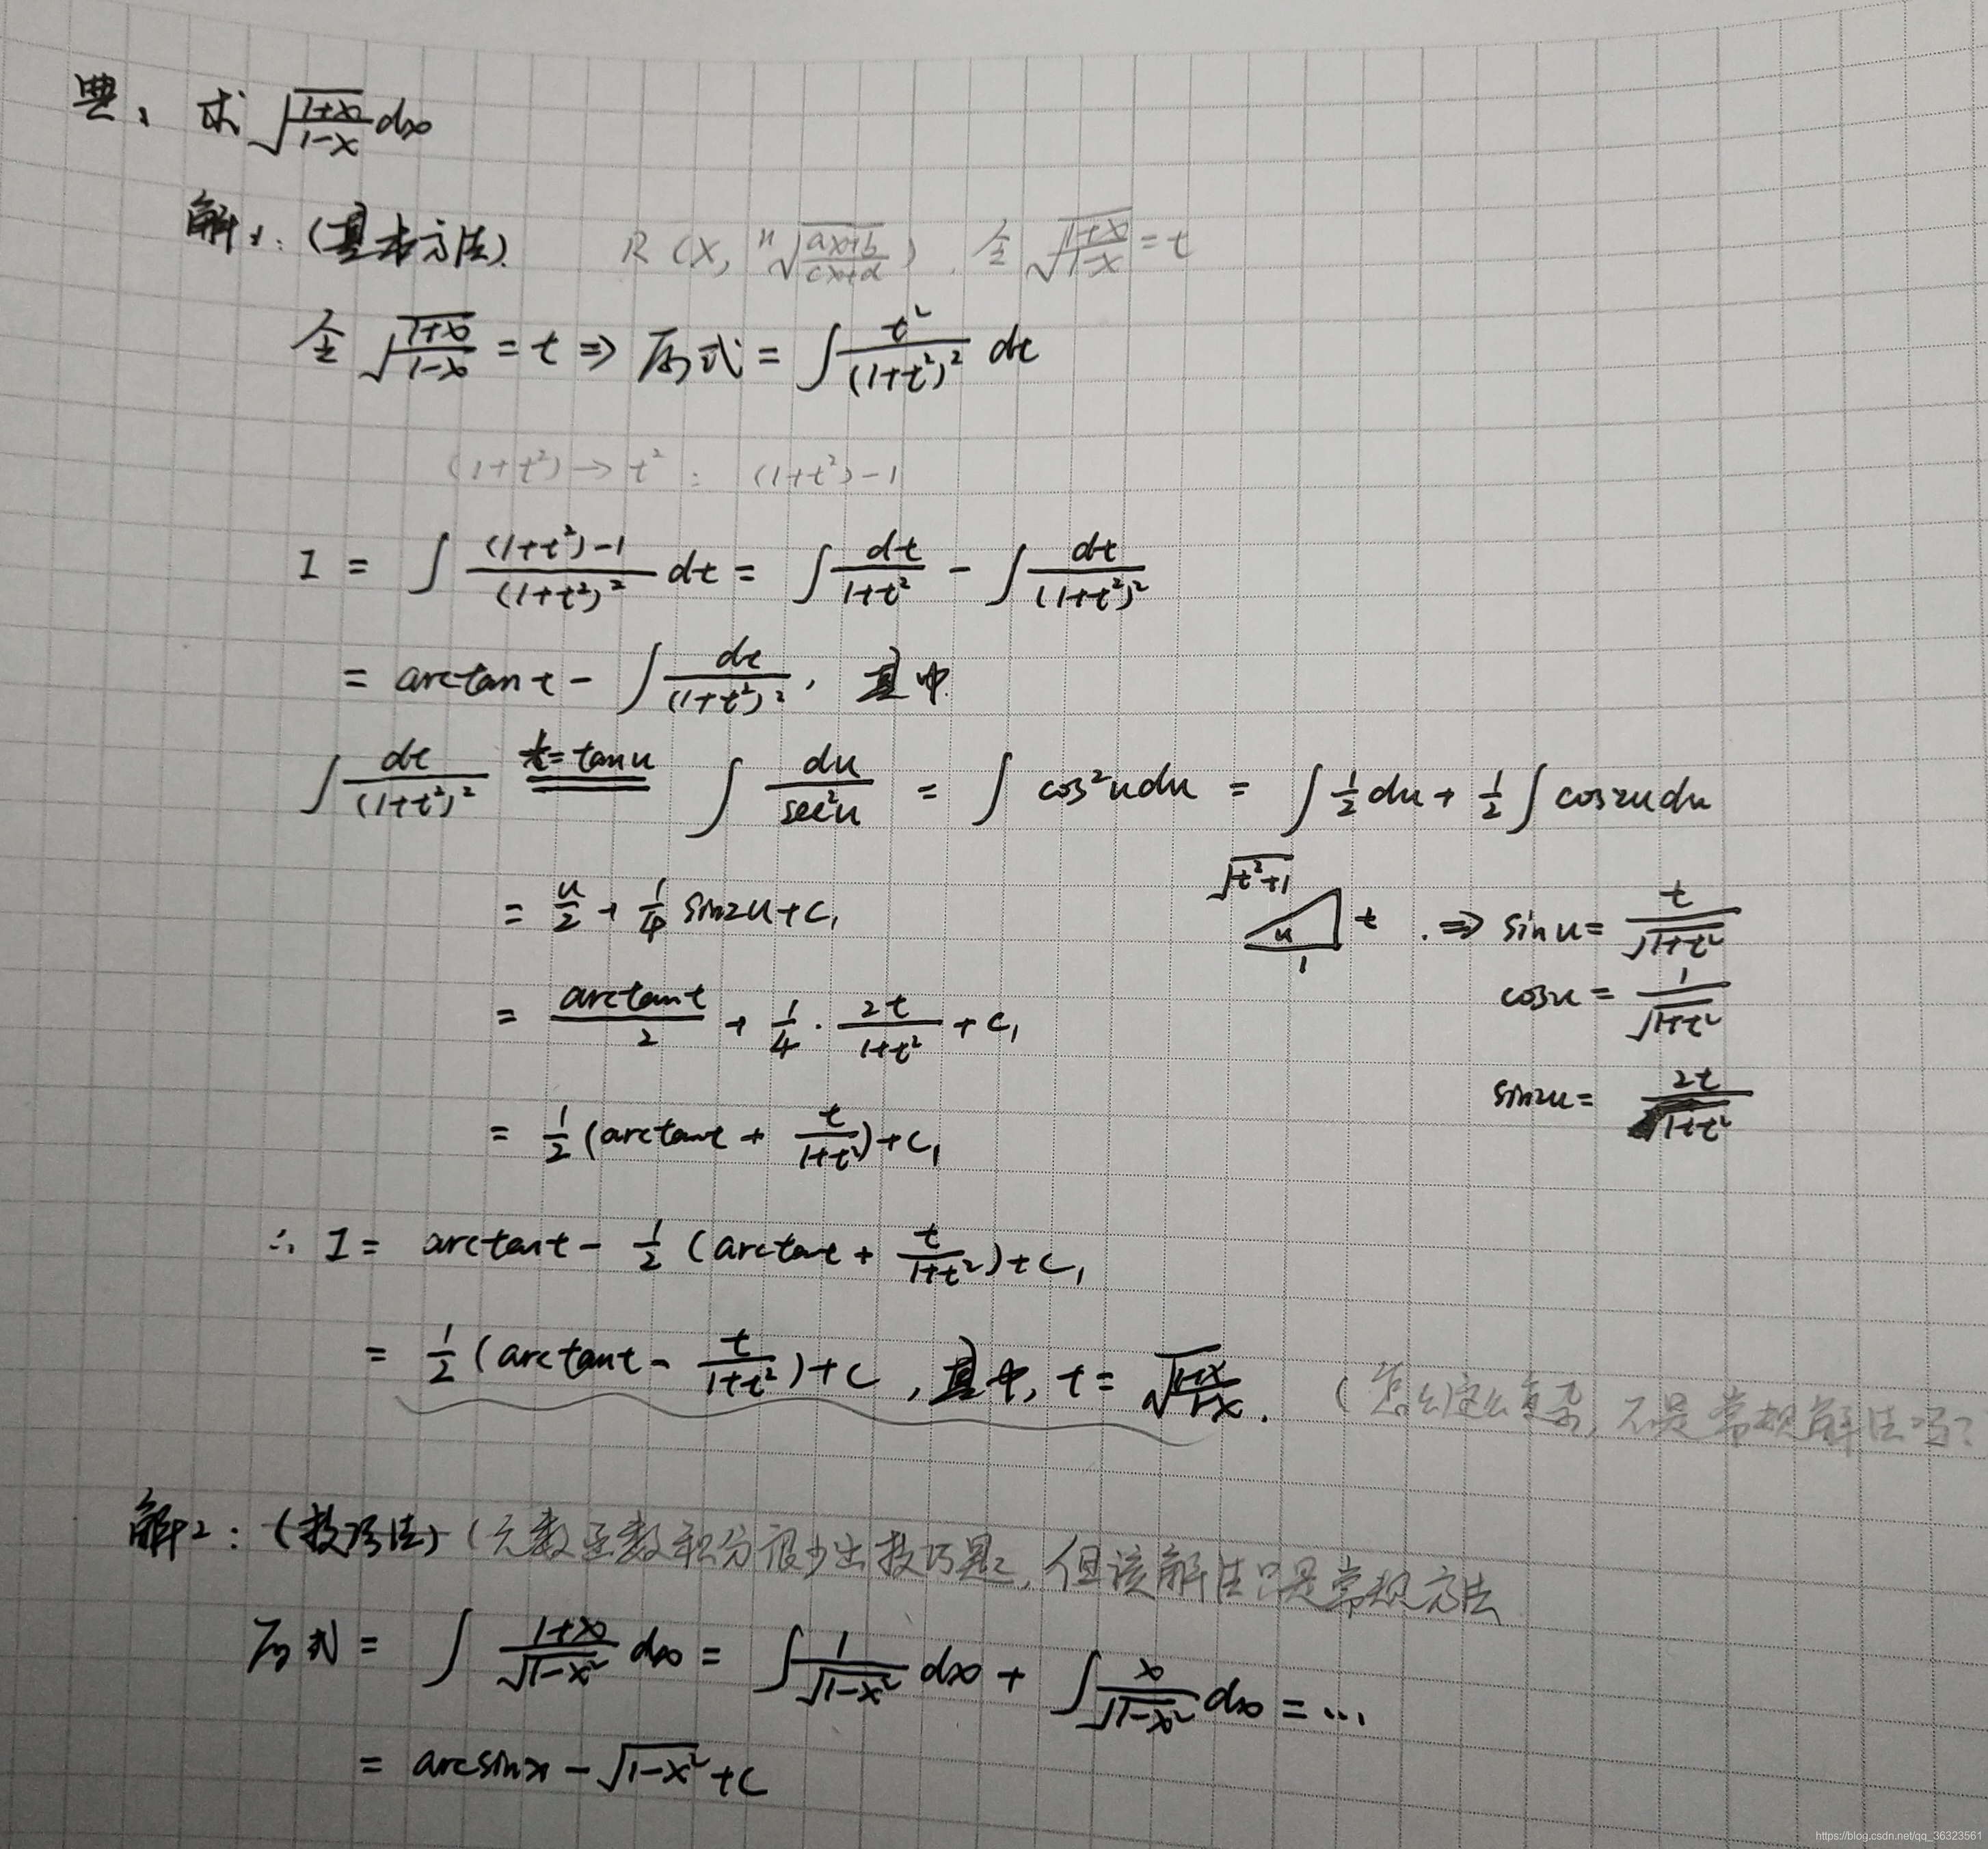 典、求 √((1+x)/(1-x)) dx
解1:(基本方法). R(x, ⁿ√((ax+b)/(cx+d))). 令 √((1+x)/(1-x)) = t
令 √((1+x)/(1-x)) = t ⇒ 原式 = ∫ t²/(1+t²)² dt
(1+t²) → t² : (1+t²)-1
I = ∫ ((1+t²)-1)/(1+t²)² dt = ∫ dt/(1+t²) - ∫ dt/(1+t²)²
= arctant - ∫ dt/(1+t²)², 其中
∫ dt/(1+t²)² t=tanu ∫ du/sec²u = ∫ cos²u du = ∫ ½ du + ½ ∫ cos2u du
= u/2 + ¼ sin2u + C₁
√(t²+1) t u 1 ⇒ sinu = t/√(1+t²)
cosu = 1/√(1+t²)
= arctant/2 + ¼ · 2t/(1+t²) + C₁
sin2u = 2t/(1+t²)
= ½ (arctant + t/(1+t²)) + C₁
∴ I = arctant - ½ (arctant + t/(1+t²)) + C₁
= ½ (arctant - t/(1+t²)) + C, 其中, t = √((1+x)/(1-x)). (怎么这么复杂, 不是常规解法吗?
解2:(技巧法)(无数函数积分很少出技巧题, 但该解法只是常规方法
原式 = ∫ (1+x)/√(1-x²) dx = ∫ 1/√(1-x²) dx + ∫ x/√(1-x²) dx = ...
= arcsinx - √(1-x²) + C
https://blog.csdn.net/qq_36323561